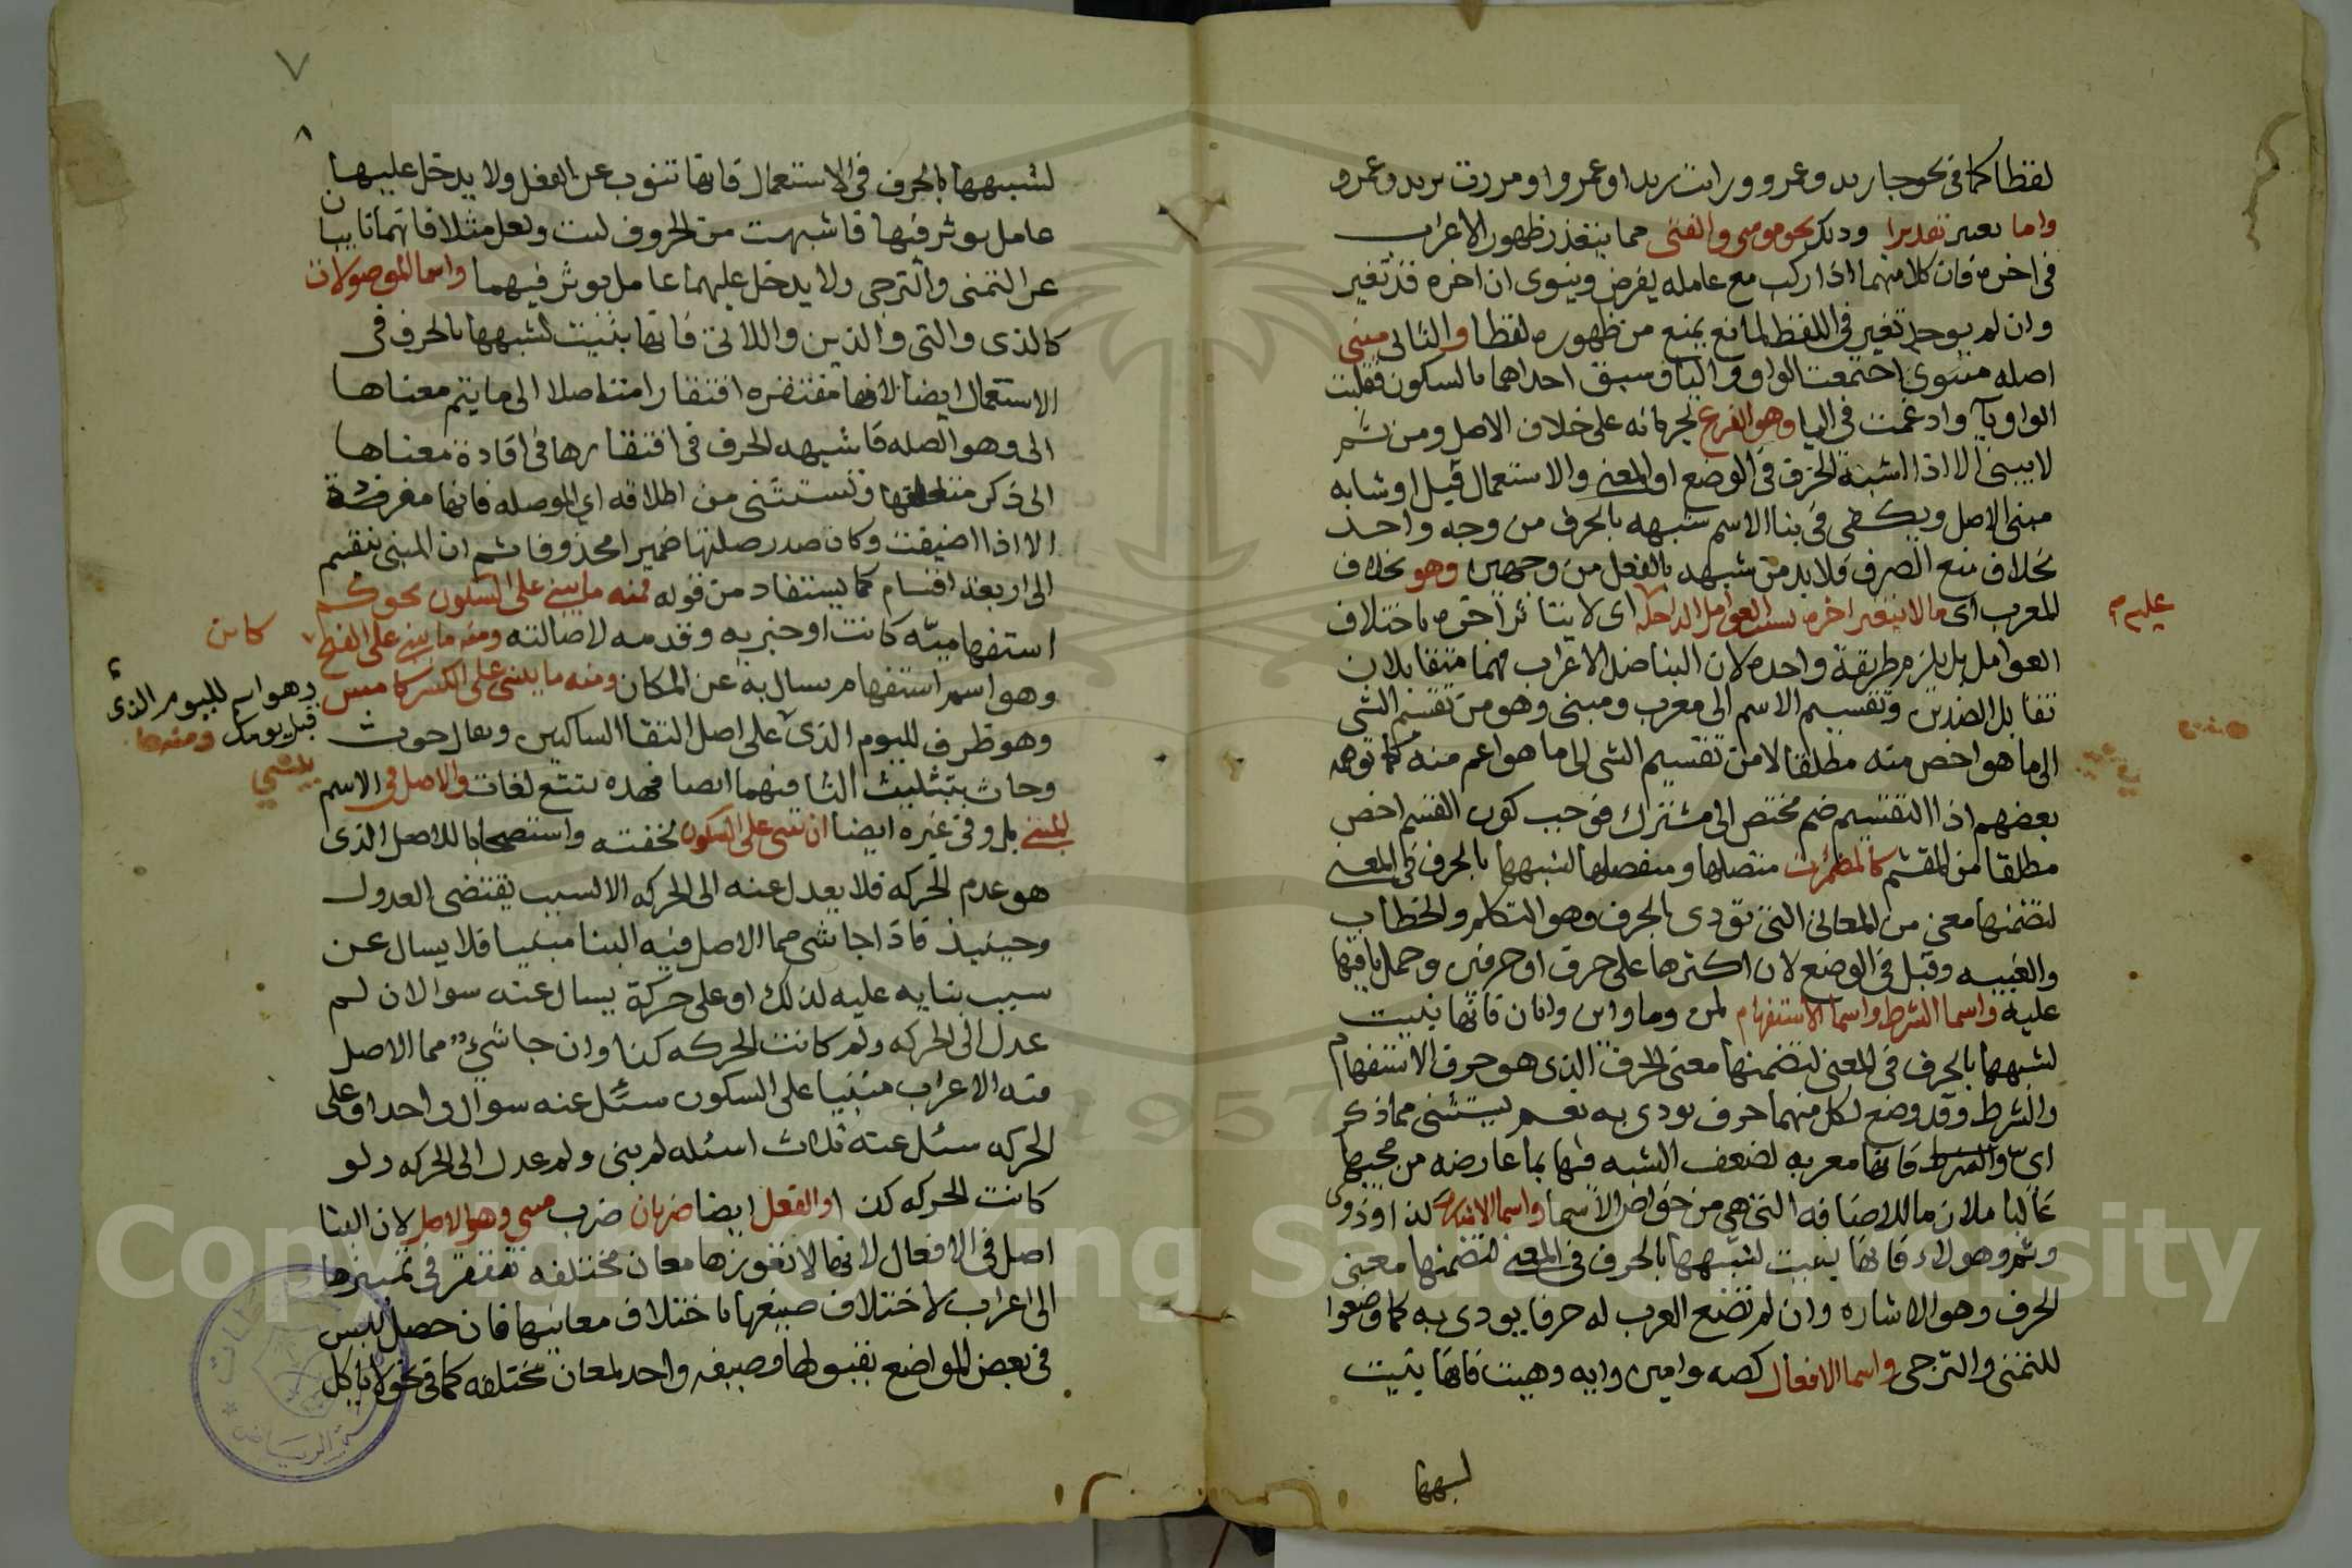 لفظا كما في نحو جا زيد وعمرو ورايت زيدا وعمروا ومررت بزيد وعمرو
واما بغير تقديرا وذلك نحو موسى والفتى مما يتعذر ظهور الاعراب
في اخره فان كلا منهما اذا ركب مع عامله يفرض وينوى ان اخره قد تغير
وان لم يوجد تغير في اللفظ لمانع يمنع من ظهوره لفظا والثاني مبنى
اصله مبنوي اجتمعت الواو واليا وسبق احداهما بالسكون فقلبت
الواو يآ وادغمت في اليا وهو الفرع لجريانه على خلاف الاصل ومن ثم
لا يبنى الا اذا اشبه الحرف في الوضع او المعنى والاستعمال قيل او شابه
مبنى الاصل ويكفي في بنا الاسم شبهه بالحرف من وجه واحد
بخلاف منع الصرف فلا بد من شبهه بالفعل من وجهين وهو بخلاف
المعرب اى ما لا يتغير اخره بسبب العوامل الداخلة اى لا يتاثر اخره باختلاف
عليه م
العوامل بل يلزم طريقة واحده لان البنا ضد الاعراب فهما متقابلان
تقابل الضدين وتقسيم الاسم الى معرب ومبنى وهو من تقسيم الشى
الى ما هو اخص منه مطلقا لا من تقسيم الشى الى ما هو اعم منه كما توهمه
بعضهم اذا التقسيم ضم مختص الى مشترك فوجب كون القسم اخص
مطلقا من المقسم كالمضمرات متصلها ومنفصلها لشبهها بالحرف في المعنى
لتضمنها معنى من المعاني التى تودى بالحرف وهو التكلم والخطاب
والغيبه وقيل في الوضع لان اكثرها على حرف او حرفين وحمل باقيها
عليه واسما الشرط واسما الاستفهام لمن وما واين وايان فانها بنيت
لشبهها بالحرف في المعنى لتضمنها معنى الحرف الذى هو حرف الاستفهام
والشرط وقد وضع لكل منهما حرف يودى به نعم يستثنى مما ذكر
اى والشرط فانها معربه لضعف الشبه فيها بما عارضه من مجيها
غالبا ملازما للاضافه التى هي من خواص الاسما واسما الاشاره كذا وذوى
وثم وهولاء فانها بنيت لشبهها بالحرف في المعنى لتضمنها معنى
الحرف وهو الاشاره وان لم تضع العرب له حرفا يودى به كما وضعوا
للتمنى والترجى واسما الافعال كصه وامين وايه وهيت فانها بنيت
لشبهها
٧
٨
لشبهها بالحرف في الاستعمال فانها تنوب عن الفعل ولا يدخل عليها
عامل يوثر فيها فاشبهت من الحروف ليت ولعل مثلا فانهما نايبان
عن التمنى والترجى ولا يدخل عليهما عامل يوثر فيهما واسما الموصولات
كالذى والتى والذين واللاتى فانها بنيت لشبهها بالحرف في
الاستعمال ايضا لانها مفتقره افتقارا متاصلا الى ما يتم معناها
الى وهو الصله فاشبهه الحرف في افتقارها في افادة معناها
الى ذكر متعلقها وتستثنى من اطلاقه اي الموصله فانها معربة
الا اذا اضيفت وكان صدر صلتها ضميرا محذوفا ثم ان المبنى ينقسم
الى اربعة اقسام كما يستفاد من قوله فمنه ما يبنى على السكون نحو كم
استفهاميّه كانت او خبريه وقدمه لاصالته ومنه ما يبنى على الفتح
كاين
وهو اسم استفهام يسال به عن المكان ومنه ما يبنى على الكسر كامس
وهو اسم لليوم الذى
قبل يومك ومنه ما
يبنى
وهو ظرف لليوم الذى على اصل التقا الساكنين ويقال حوث
وحاث بتثليث الثا فيهما ايضا فهذه تسع لغات والاصل في الاسم
المبنى بل وفي غيره ايضا ان يبنى على السكون لخفته واستصحابا للاصل الذى
هو عدم الحركه فلا يعدل عنه الى الحركه الا لسبب يقتضى العدول
وحينيذ فاذا جا شى مما الاصل فيه البنا مبنيا فلا يسال عن
سبب بنايه عليه لذلك او على حركة يسال عنه سوالان لم
عدل الى الحركه ولم كانت الحركه كذا وان جا شيء مما الاصل
فيه الاعراب مبنيا على السكون سئل عنه سوال واحد او على
الحركه سئل عنه ثلاث اسئله لم بنى ولم عدل الى الحركه ولو
كانت الحركه كذا والفعل ايضا ضربان ضرب مبنى وهو الاصل لان البنا
اصل في الافعال لانها لا تعورها معان مختلفه تفتقر في تمييزها
الى اعراب لاختلاف صيغها باختلاف معانيها فان حصل لبس
في بعض المواضع بقبولها صيغه واحد لمعان مختلفه كما في نحو لا تاكل
Copyright © King Saud University
1957